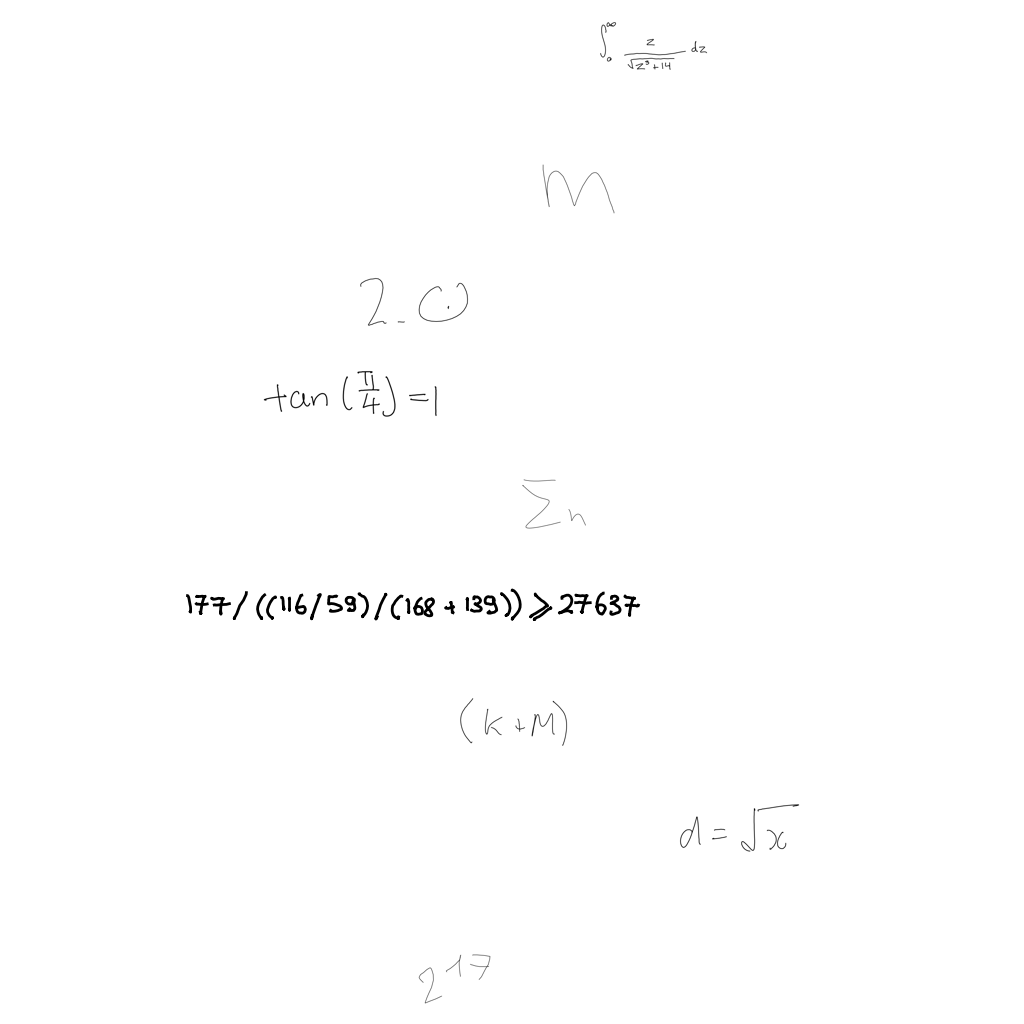 ∫₀^∞ z/√(z³+14) dz
m
2.0
tan(π/4)=1
Σn
177/((116/59)/(168+139))≥27637
(k+M)
d=√x
2¹⁷